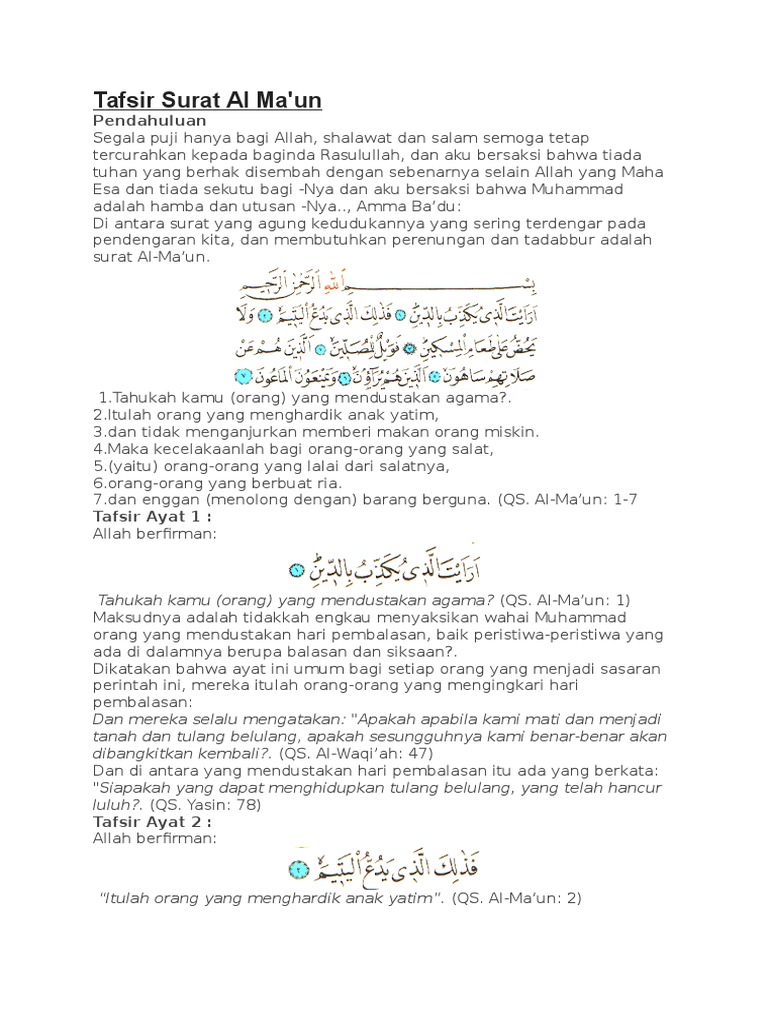 Tafsir Surat Al Ma'un
Pendahuluan
Segala puji hanya bagi Allah, shalawat dan salam semoga tetap
tercurahkan kepada baginda Rasulullah, dan aku bersaksi bahwa tiada
tuhan yang berhak disembah dengan sebenarnya selain Allah yang Maha
Esa dan tiada sekutu bagi -Nya dan aku bersaksi bahwa Muhammad
adalah hamba dan utusan -Nya.., Amma Ba’du:
Di antara surat yang agung kedudukannya yang sering terdengar pada
pendengaran kita, dan membutuhkan perenungan dan tadabbur adalah
surat Al-Ma’un.
بِسْمِ اللهِ الرَّحْمٰنِ الرَّحِيْمِ
اَرَاَيْتَ الَّذِيْ يُكَذِّبُ بِالدِّيْنِۗ ١ فَذٰلِكَ الَّذِيْ يَدُعُّ الْيَتِيْمَۙ ٢ وَلَا
يَحُضُّ عَلٰى طَعَامِ الْمِسْكِيْنِۗ ٣ فَوَيْلٌ لِّلْمُصَلِّيْنَۙ ٤ الَّذِيْنَ هُمْ عَنْ
صَلَاتِهِمْ سَاهُوْنَۙ ٥ الَّذِيْنَ هُمْ يُرَاۤءُوْنَۙ ٦ وَيَمْنَعُوْنَ الْمَاعُوْنَ ٧
1.Tahukah kamu (orang) yang mendustakan agama?.
2.Itulah orang yang menghardik anak yatim,
3.dan tidak menganjurkan memberi makan orang miskin.
4.Maka kecelakaanlah bagi orang-orang yang salat,
5.(yaitu) orang-orang yang lalai dari salatnya,
6.orang-orang yang berbuat ria.
7.dan enggan (menolong dengan) barang berguna. (QS. Al-Ma’un: 1-7
Tafsir Ayat 1 :
Allah berfirman:
اَرَاَيْتَ الَّذِيْ يُكَذِّبُ بِالدِّيْنِۗ ١
Tahukah kamu (orang) yang mendustakan agama? (QS. Al-Ma’un: 1)
Maksudnya adalah tidakkah engkau menyaksikan wahai Muhammad
orang yang mendustakan hari pembalasan, baik peristiwa-peristiwa yang
ada di dalamnya berupa balasan dan siksaan?.
Dikatakan bahwa ayat ini umum bagi setiap orang yang menjadi sasaran
perintah ini, mereka itulah orang-orang yang mengingkari hari
pembalasan:
Dan mereka selalu mengatakan: "Apakah apabila kami mati dan menjadi
tanah dan tulang belulang, apakah sesungguhnya kami benar-benar akan
dibangkitkan kembali?. (QS. Al-Waqi’ah: 47)
Dan di antara yang mendustakan hari pembalasan itu ada yang berkata:
"Siapakah yang dapat menghidupkan tulang belulang, yang telah hancur
luluh?. (QS. Yasin: 78)
Tafsir Ayat 2 :
Allah berfirman:
فَذٰلِكَ الَّذِيْ يَدُعُّ الْيَتِيْمَۙ ٢
"Itulah orang yang menghardik anak yatim". (QS. Al-Ma’un: 2)